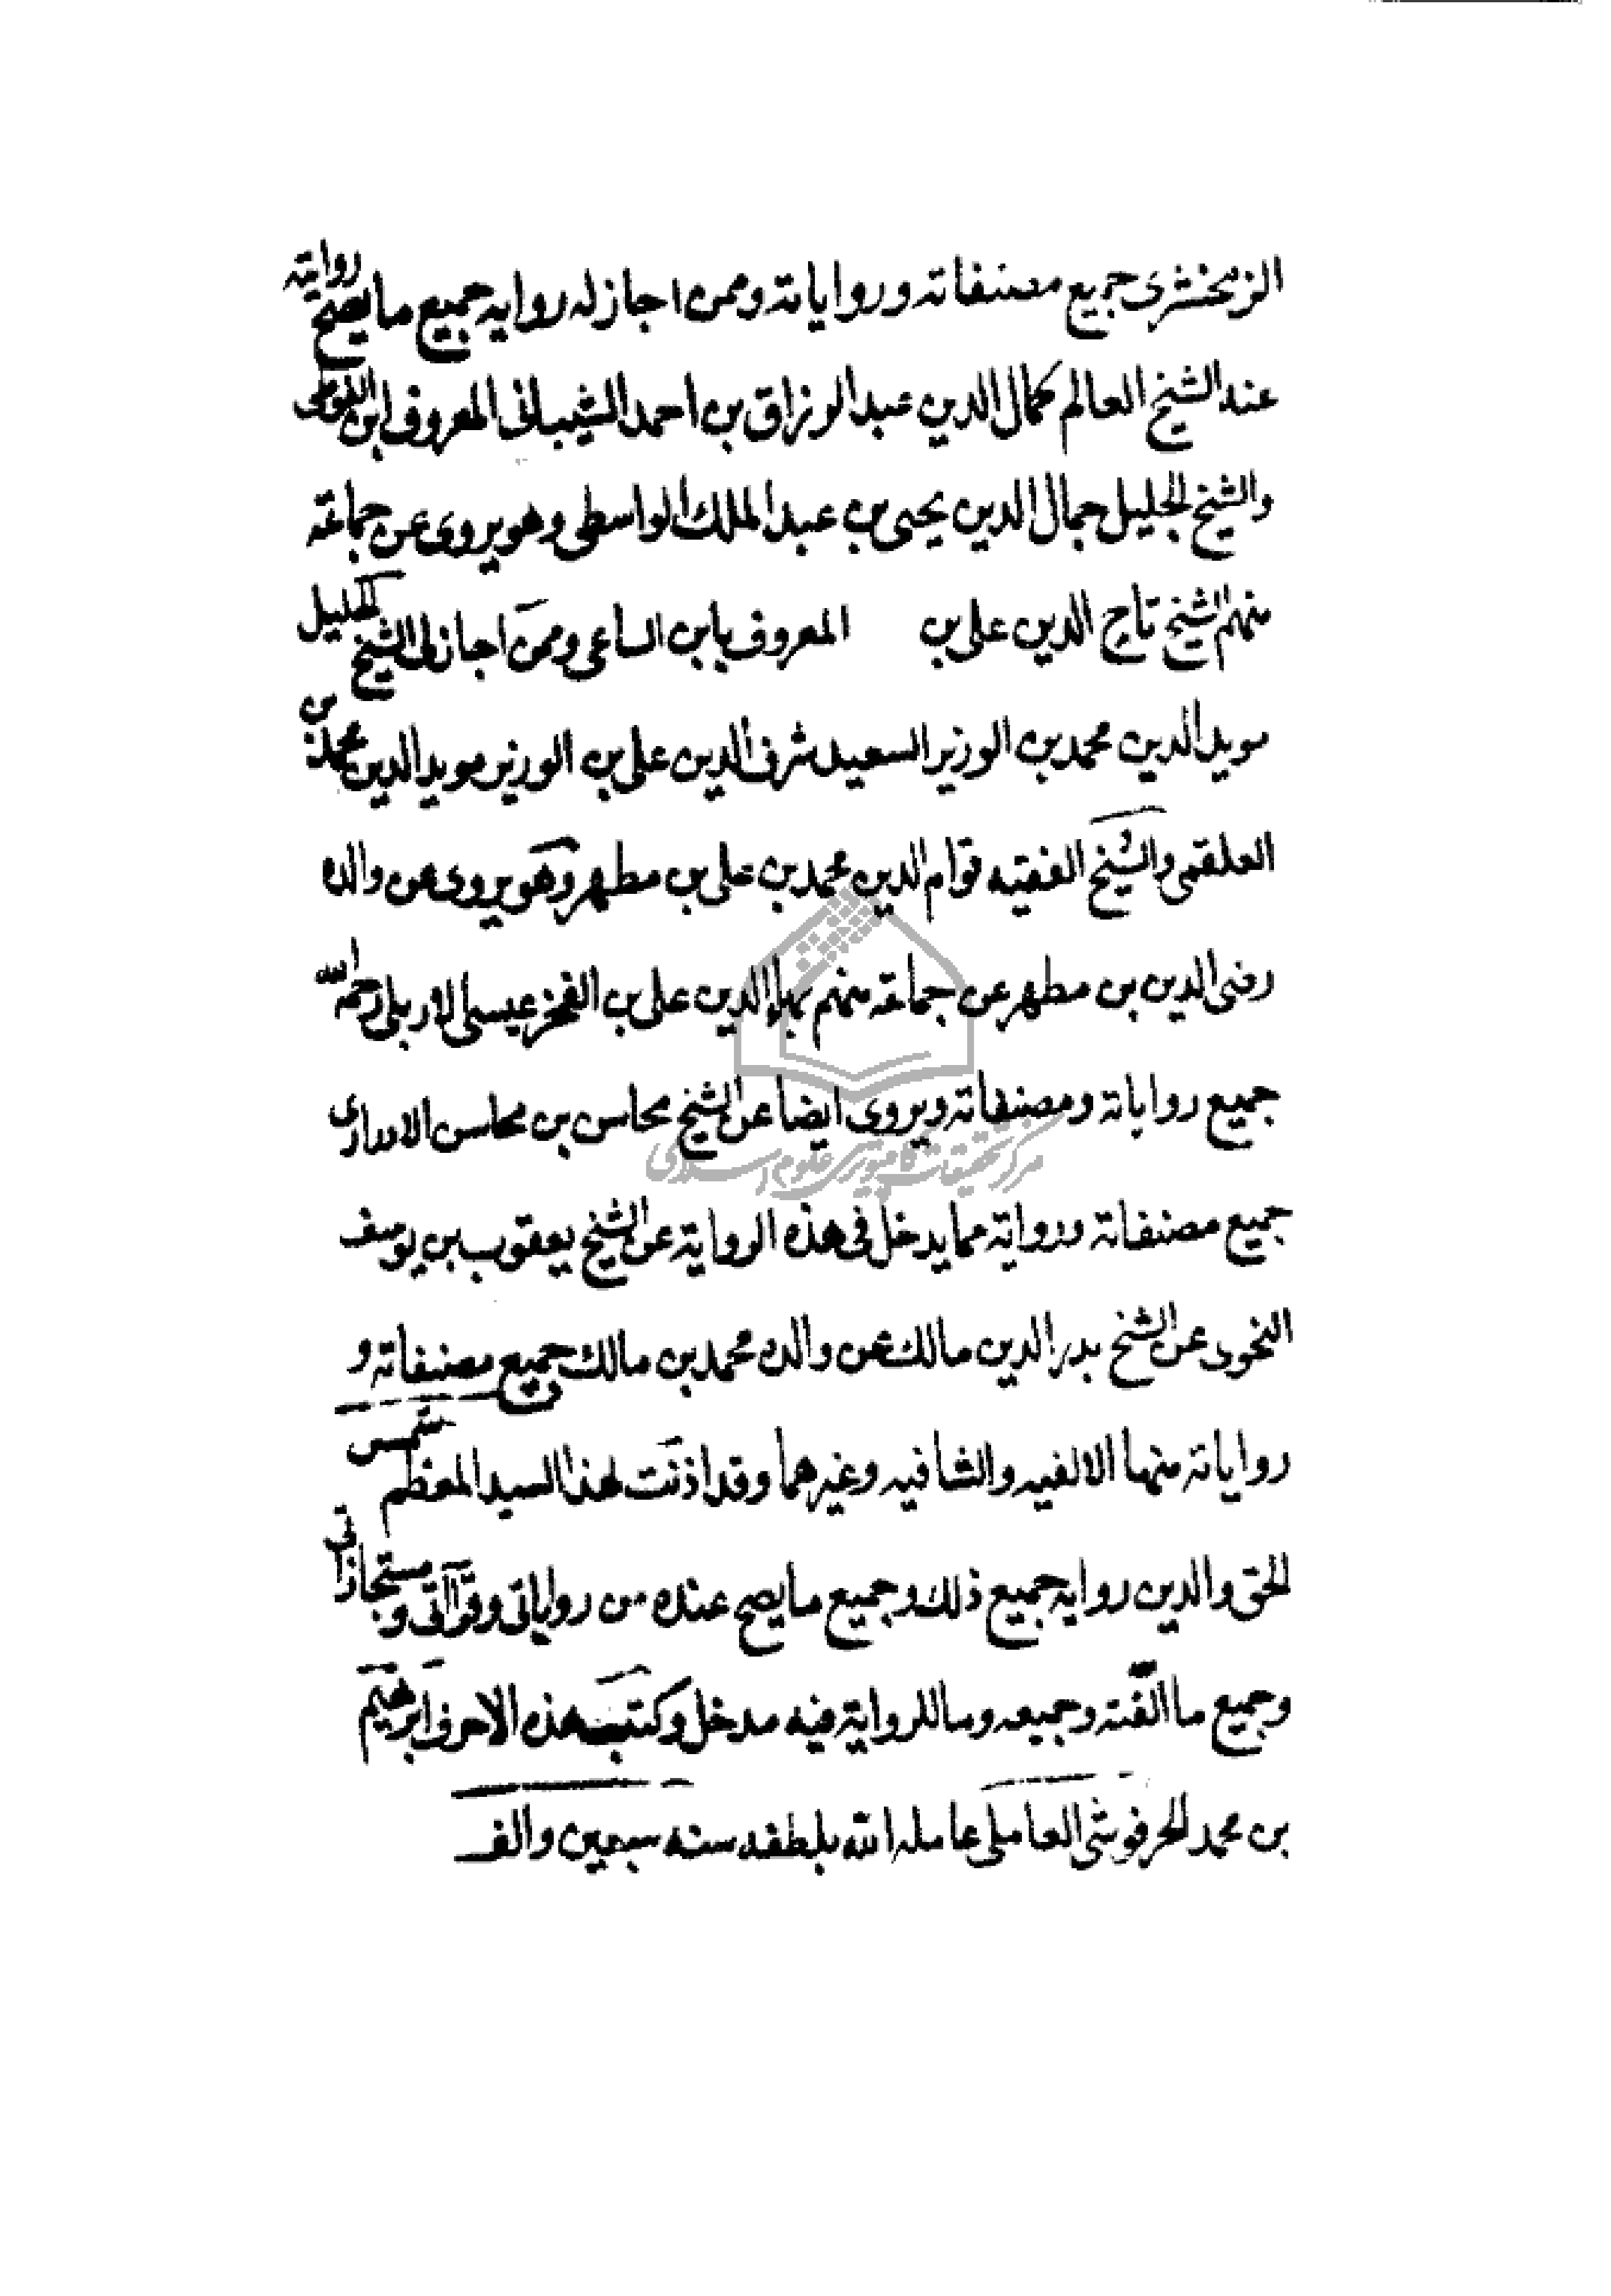 الزمخشرى جميع مصنفاته ورواياته وممن اجاز له روايه جميع ما يصح روايته
عند الشيخ العالم كمال الدين عبد الرزاق بن احمد الشيبانى المعروف ابن الفوطى
والشيخ الجليل جمال الدين يحيى بن عبد الملك الواسطى وهو يروى عن جماعة
منهم الشيخ تاج الدين على بن المعروف بابن الساعى وممن اجاز لى الشيخ الجليل
مويد الدين محمد بن الوزير السعيد شرف الدين على بن الوزير مويد الدين محمد بن
العلقمى والشيخ الفقيه قوام الدين محمد بن على بن مطهر وهو يروى عن والده
رضى الدين بن مطهر عن جماعة منهم بهاء الدين على بن الفخر عيسى الاربلى رحمه الله
جميع رواياته ومصنفاته ويروى ايضا عن الشيخ محاسن بن محاسن
جميع مصنفاته وروايته مما يدخل فى هذه الرواية عن الشيخ يعقوب بن يوسف
النحوى عن الشيخ بدر الدين مالك عن والده محمد بن مالك جميع مصنفاته و
رواياته منها الالفيه والشافيه وغيرهما وقد اذنت لهذا السيد المعظم شمس
الحق والدين روايه جميع ذلك وجميع ما يصح عنده من رواياتى وقرآاتى ومستجازاتى
وجميع ما الفته وجميعه وما للرواية فيه مدخل وكتب هذه الاحرف ابرهيم
بن محمد الحرفوشى العاملى عامله الله بلطفه سنه سبعين والف
مركز تحقيقات كامپيوترى علوم اسلامى